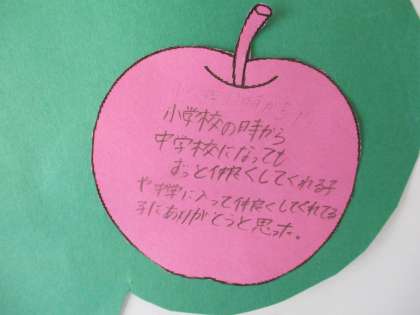 小学校の時から
中学校になっても
ずっと仲良くしてくれる子
や中学に入って仲良くしてくれてる
子にありがとうと思った。